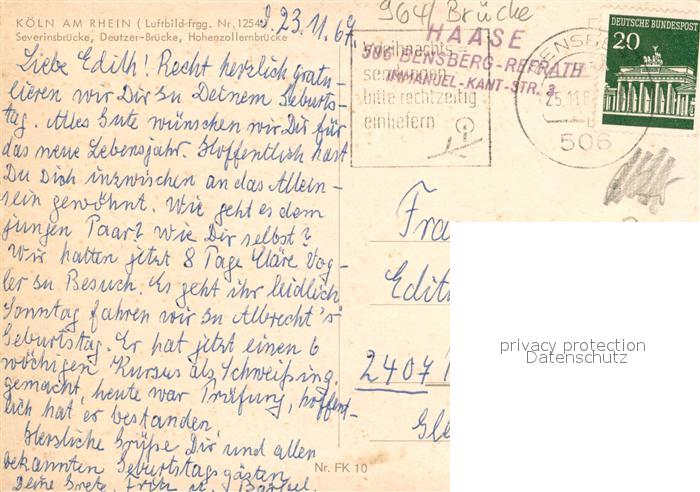 KÖLN AM RHEIN ( Luftbild-frgg. Nr. 1254
Severinsbrücke, Deutzer-Brücke, Hohenzollernbrücke
23.11.67.
964/ Brücke
Liebe Edith! Recht herzlich gratu-
lieren wir Dir zu Deinem Geburts-
tag. Alles Gute wünschen wir Dir für
das neue Lebensjahr. Hoffentlich hast
Du Dich inzwischen an das Allein-
sein gewöhnt. Wie geht es dem
jungen Paar? Wie Dir selbst?
Wir hatten jetzt 8 Tage Kläre Vog-
ler zu Besuch. Es geht ihr leidlich
Sonntag fahren wir zu Albrecht's
Geburtstag. Er hat jetzt einen 6
wöchigen Kursus als Schweißing.
gemacht, heute war Prüfung, hoffent-
lich hat er bestanden.
Herzliche Grüße Dir und allen
bekannten Geburtstagsgästen
Deine Grete, Fritz u.
Nr. FK 10
HAASE
506 BENSBERG-REFRATH
IMMANUEL-KANT-STR. 3
Weihnachts-
sendungen
bitte rechtzeitig
einliefern
BENSB
25.11.6
506
DEUTSCHE BUNDESPOST
20
Fra
Edit
2407
Gle
privacy protection
Datenschutz